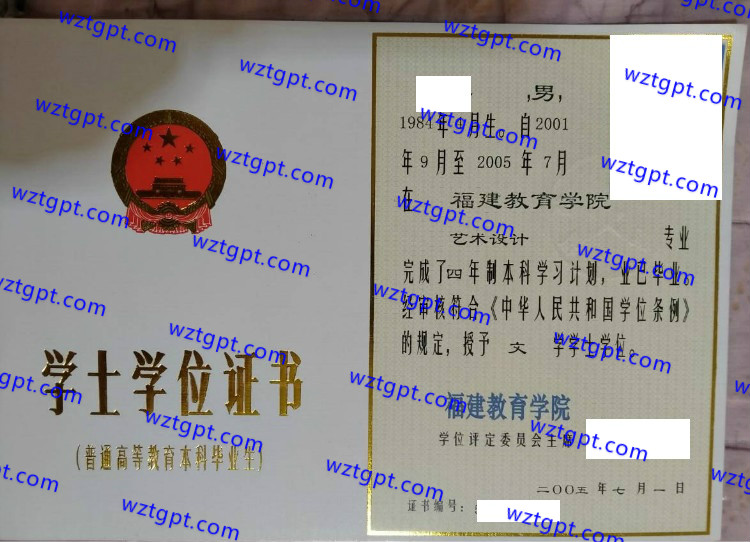 学士学位证书
(普通高等教育本科毕业生)
,男,
1984年1月生。自2001
年9月至2005年7月
在 福建教育学院
艺术设计 专业
完成了四年制本科学习计划,业已毕业。
经审核符合《中华人民共和国学位条例》
的规定,授予 文 学学士学位。
福建教育学院
学位评定委员会主席
二〇〇五年七月一日
证书编号:
wztgpt.com
wztgpt.com
wztgpt.com
wztgpt.com
wztgpt.com
wztgpt.com
wztgpt.com
wztgpt.com
wztgpt.com
wztgpt.com
wztgpt.com
wztgpt.com
wztgpt.com
wztgpt.com
wztgpt.com
wztgpt.com
wztgpt.com
wztgpt.com
wztgpt.com
wztgpt.com